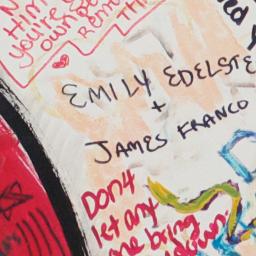 Him
you're
own
Remo
TH
ed
EMILY EDELSTE
+
JAMES FRANCO
Don4
let any
one bring
down